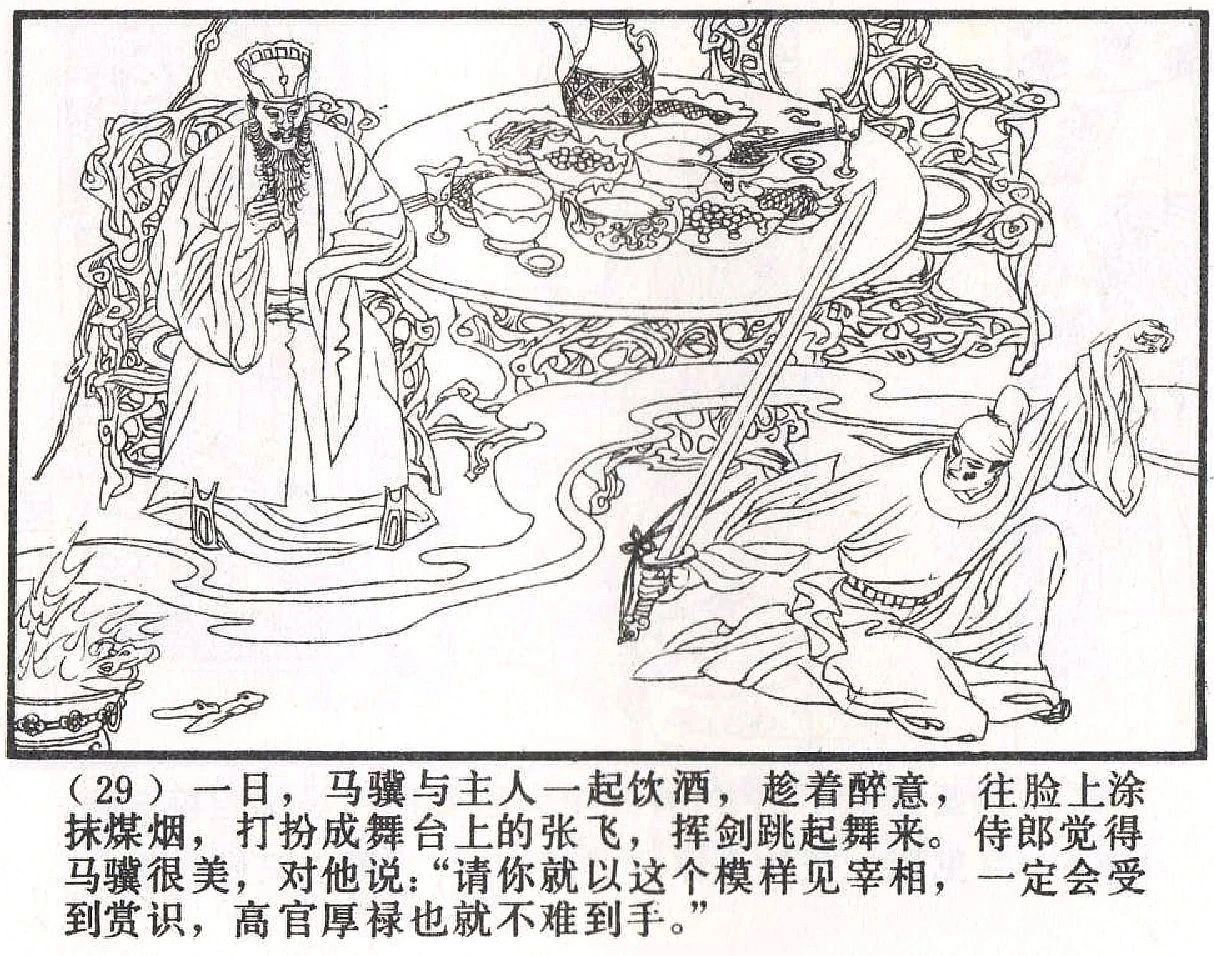 （29）一日，马骥与主人一起饮酒，趁着醉意，往脸上涂
抹煤烟，打扮成舞台上的张飞，挥剑跳起舞来。侍郎觉得
马骥很美，对他说：“请你就以这个模样见宰相，一定会受
到赏识，高官厚禄也就不难到手。”